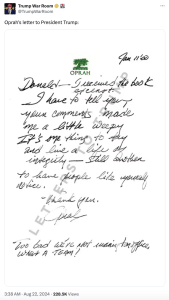 Trump War Room
@TrumpWarRoom
Oprah's letter to President Trump:
OPRAH
Jan 11 '00
Donald - I received the book
excerpt
I have to tell you
your comments made
me a little weepy
It's one thing to try
and live a life of
integrity - Still another
to have people like yourself
notice.
Thank you.
Too bad we're not running for office.
WHAT A TEAM!
5:38 AM · Aug 22, 2024 · 228.5K Views